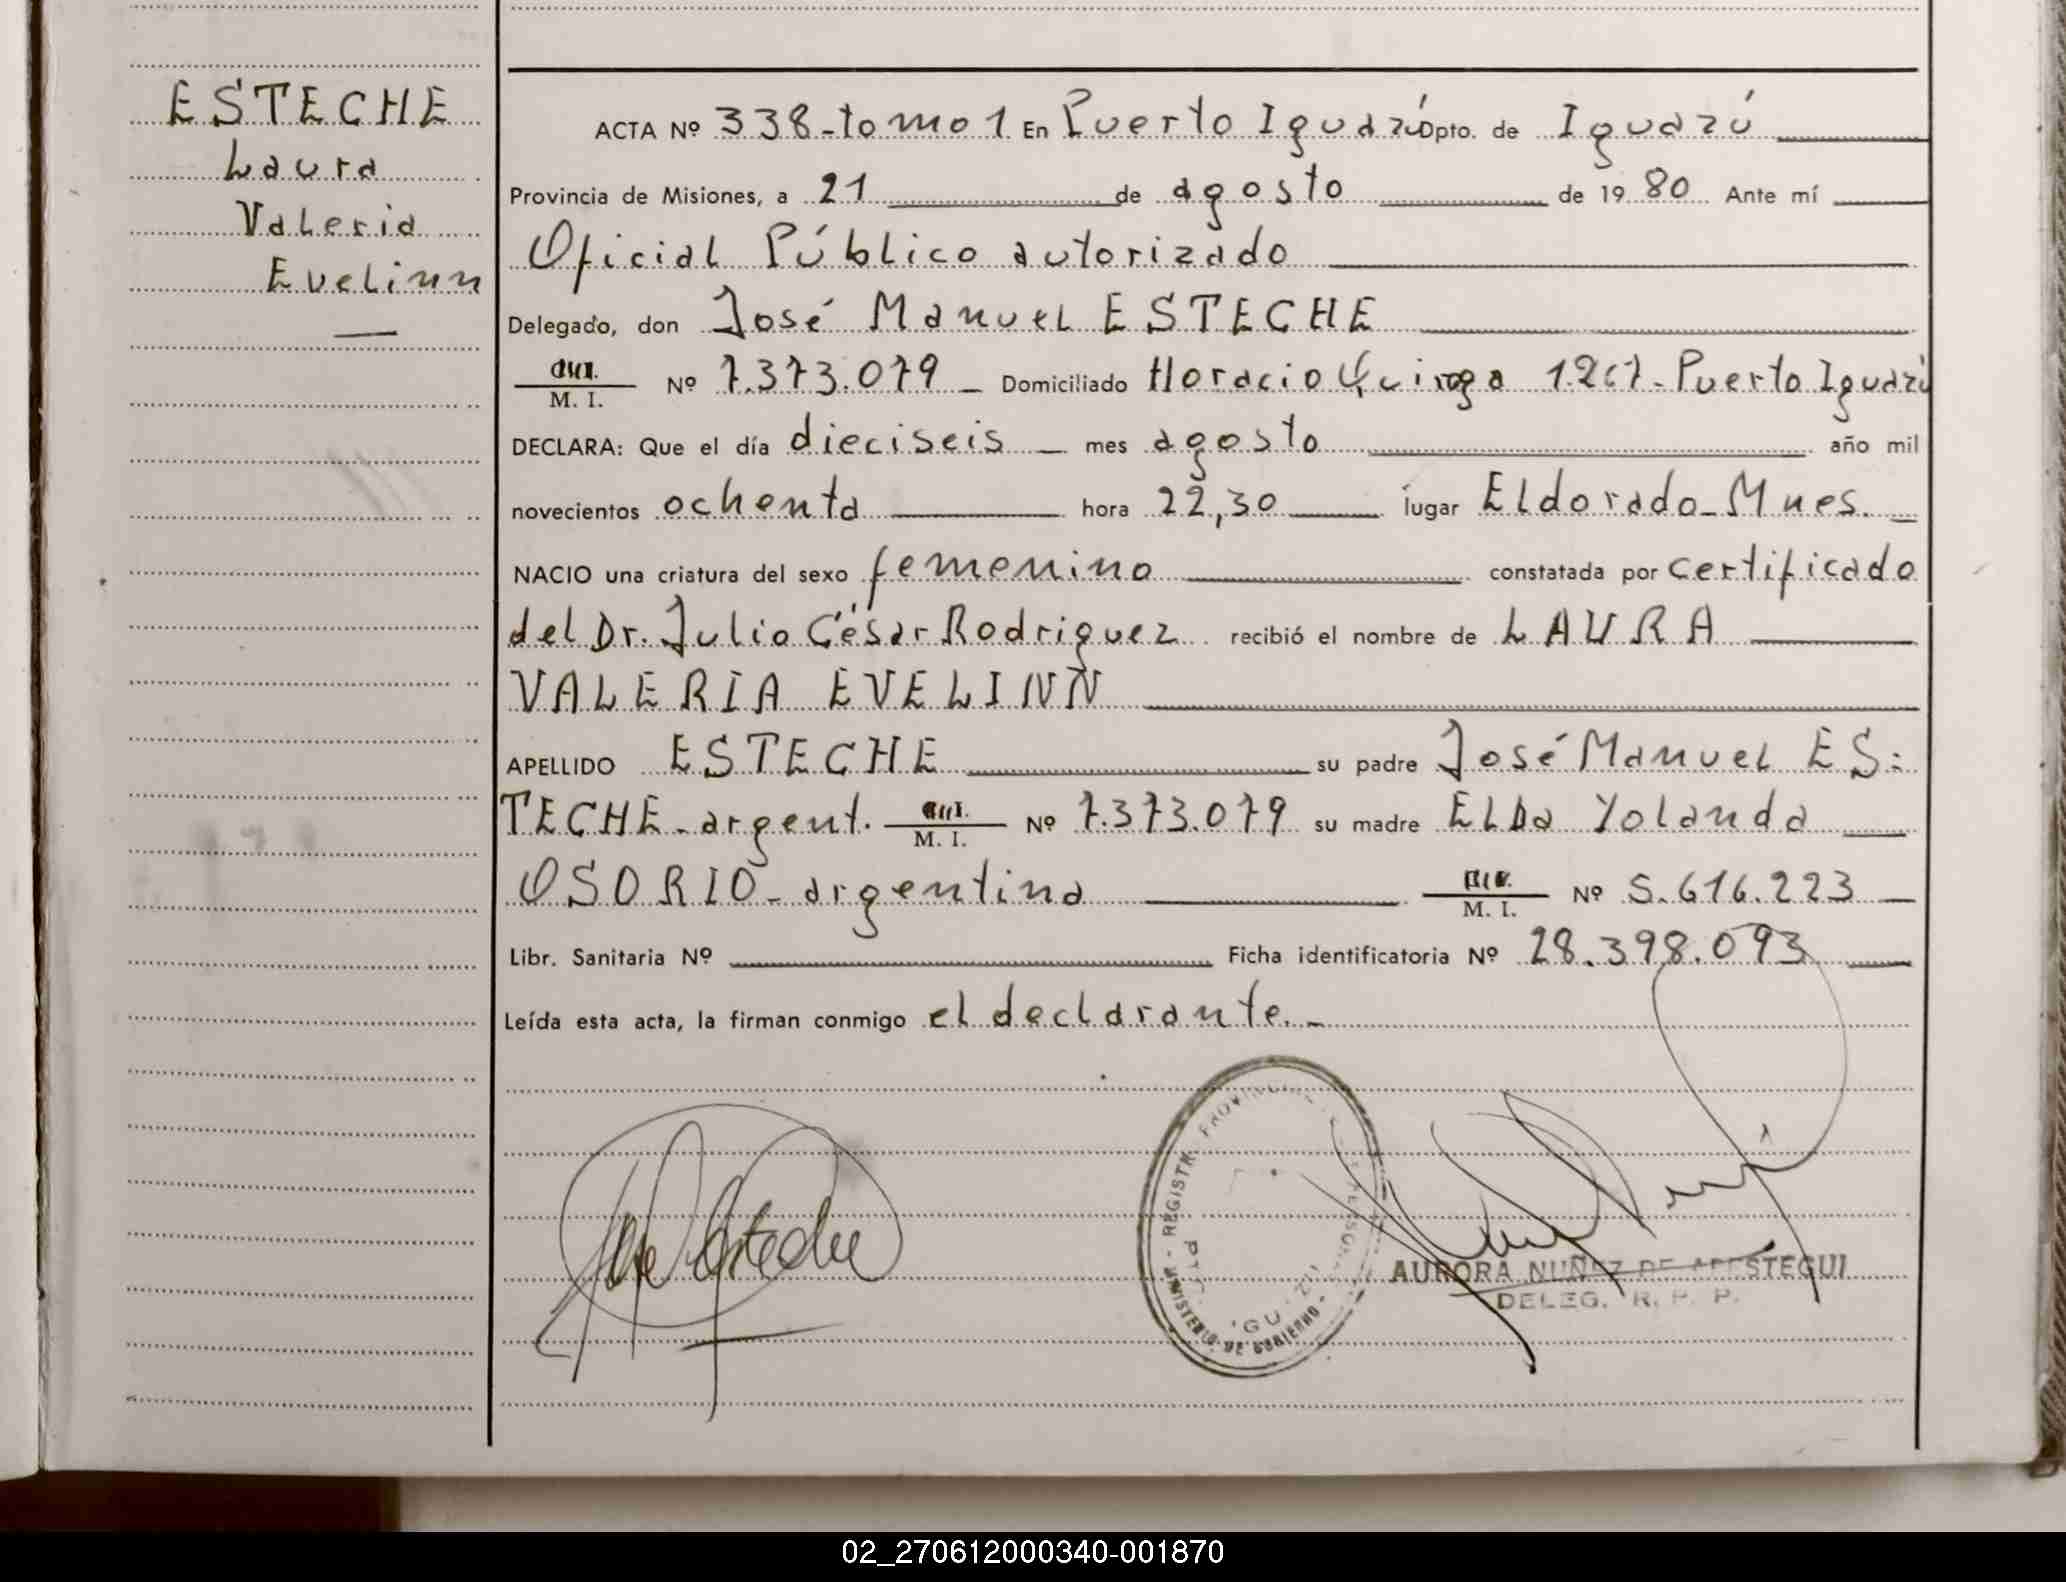 ESTECHE
Laura
Valeria
Evelinn
ACTA Nº 338-tomo 1 En Puerto Iguazú Dpto. de Iguazú
Provincia de Misiones, a 21 de agosto de 1980 Ante mí
Oficial Público autorizado
Delegado, don José Manuel ESTECHE
M. I. Nº 7.373.079 Domiciliado Horacio Quiroga 1267-Puerto Iguazú
DECLARA: Que el día dieciseis mes agosto año mil
novecientos ochenta hora 22,30 lugar Eldorado-Mnes.
NACIO una criatura del sexo femenino constatada por certificado
del Dr. Julio César Rodriguez recibió el nombre de LAURA
VALERIA EVELINN
APELLIDO ESTECHE su padre José Manuel ES=
TECHE-argent. M. I. Nº 7.373.079 su madre Elba Yolanda
OSORIO-argentina M. I. Nº 5.616.223
Libr. Sanitaria Nº Ficha identificatoria Nº 28.398.093
Leída esta acta, la firman conmigo el declarante.-
MINISTERIO DE GOBIERNO - REGISTR. PROVINCIAL
AURORA NUÑEZ DE APESTEGUI
DELEG. R. P. P.
02_270612000340-001870